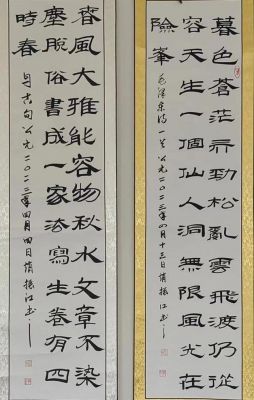 暮色蒼茫勁松亂雲飛渡仍從
容天生一個仙人洞無限風光在
險峯
毛澤東詩一首公元二〇二三年四月十三日振江书
春風大雅能容物秋水文章不染
塵脫俗書成一家法寫生卷有四
時春
古句公元二〇二三年四月四日振江书